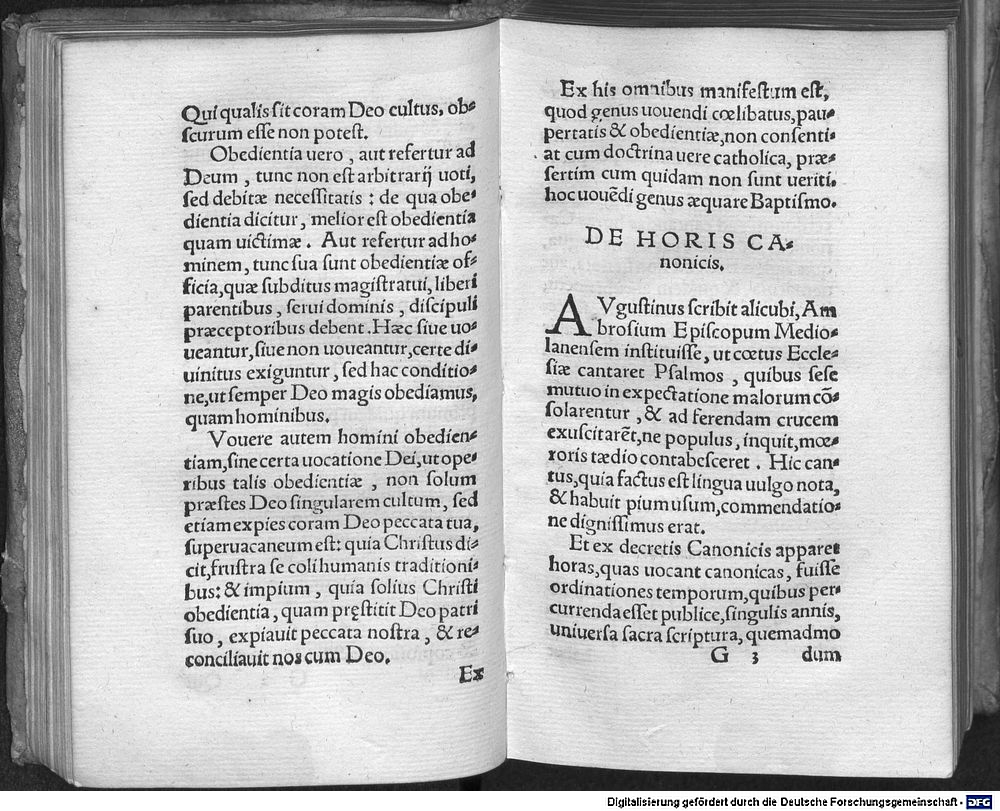 Qui qualis sit coram Deo cultus, ob-
scurum esse non potest.
Obedientia uero, aut refertur ad
Deum, tunc non est arbitrarij uoti,
sed debitæ necessitatis: de qua obe-
dientia dicitur, melior est obedientia
quam uictimæ. Aut refertur ad ho-
minem, tunc sua sunt obedientiæ of-
ficia, quæ subditus magistratui, liberi
parentibus, serui dominis, discipuli
præceptoribus debent. Hæc siue uo-
ueantur, siue non uoueantur, certe di-
uinitus exiguntur, sed hac conditio-
ne, ut semper Deo magis obediamus,
quam hominibus.
Vouere autem homini obedien-
tiam, sine certa uocatione Dei, ut ope-
ribus talis obedientiæ, non solum
præstes Deo singularem cultum, sed
etiam expies coram Deo peccata tua,
superuacaneum est: quia Christus di-
cit, frustra se coli humanis traditioni-
bus: & impium, quia solius Christi
obedientia, quam pręstitit Deo patri
suo, expiauit peccata nostra, & re-
conciliauit nos cum Deo.
Ex
Ex his omnibus manifestum est,
quod genus uouendi cœlibatus, pau-
pertatis & obedientiæ, non consenti-
at cum doctrina uere catholica, præ-
sertim cum quidam non sunt ueriti,
hoc uouēdi genus æquare Baptismo.
DE HORIS CA-
nonicis.
AVgustinus scribit alicubi, Am
brosium Episcopum Medio-
lanensem instituisse, ut cœtus Eccle-
siæ cantaret Psalmos, quibus sese
mutuo in expectatione malorum cō-
solarentur, & ad ferendam crucem
exuscitarēt, ne populus, inquit, mœ-
roris tædio contabesceret. Hic can-
tus, quia factus est lingua uulgo nota,
& habuit pium usum, commendatio-
ne dignissimus erat.
Et ex decretis Canonicis apparet
horas, quas uocant canonicas, fuisse
ordinationes temporum, quibus per-
currenda esset publice, singulis annis,
uniuersa sacra scriptura, quemadmo
G 3 dum
Digitalisierung gefördert durch die Deutsche Forschungsgemeinschaft - DFG